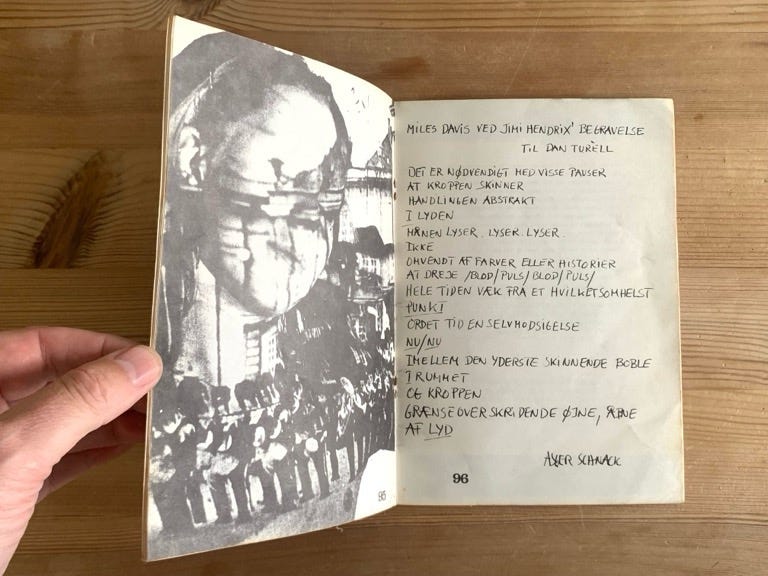 95
MILES DAVIS VED JIMI HENDRIX' BEGRAVELSE
TIL DAN TURÈLL
DET ER NØDVENDIGT MED VISSE PAUSER
AT KROPPEN SKINNER
HANDLINGEN ABSTRAKT
I LYDEN
MÅNEN LYSER. LYSER. LYSER.
IKKE
OMVENDT AF FARVER ELLER HISTORIER
AT DREJE /BLOD/PULS/BLOD/PULS/
HELE TIDEN VÆK FRA ET HVILKETSOMHELST
PUNKT
ORDET TID EN SELVMODSIGELSE
NU/NU
IMELLEM DEN YDERSTE SKINNENDE BOBLE
I RUMMET
OG KROPPEN
GRÆNSEOVERSKRIDENDE ØJNE, ÅBNE
AF LYD
ASGER SCHNACK
96